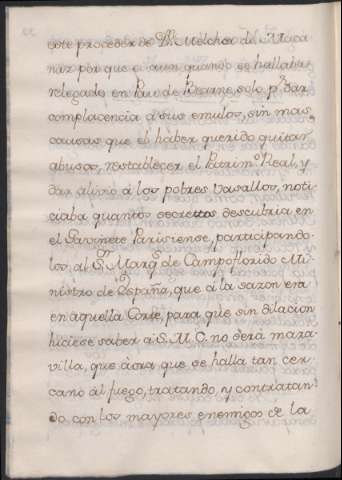 este proceder de Dn. Melchor de Maca
naz por que si aun quando se hallaba
relegado en Pau de Bearne, solo pr. dar
complacencia à sus emulos, sin mas
causas que el haber querido quitar
abusos, restablecer el Patrimo. Real, y
dar alivio à los pobres vasallos, noti
ciaba quantos secretos descubria en
el Gavinete Parisiense, participando
los, al Sr. Marqs. de Campoflorido Mi-
nistro de España, que à la sazon era
en aquella Corte, para que sin dilacion
hiciese saber à S. M. C. no serà mara
villa, que aora que se halla tan cer
cano al fuego, tratando, y contratan
do con los mayores enemigos de la